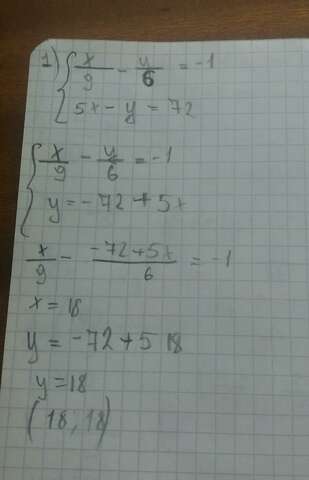 1) { x/9 - y/6 = -1
5x - y = 72
{ x/9 - y/6 = -1
y = -72 + 5x
x/9 - -72+5x/6 = -1
x = 18
y = -72 + 5 18
y = 18
(18; 18)